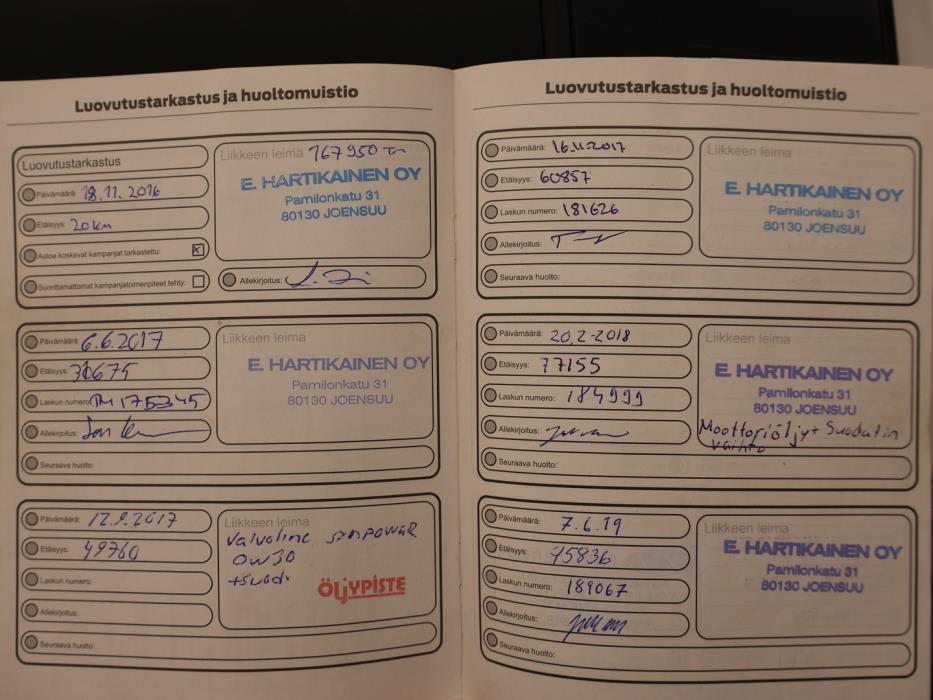 Luovutustarkastus ja huoltomuistio
Luovutustarkastus
Päivämäärä: 18.11.2016
Etäisyys: 20 km
Autoa koskevat kampanjat tarkastettu: X
Suorittamattomat kampanjatoimenpiteet tehty:
Liikkeen leima 167950
E. HARTIKAINEN OY
Pamilonkatu 31
80130 JOENSUU
Allekirjoitus:
Päivämäärä: 6.6.2017
Etäisyys: 30675
Laskun numero: 175345
Allekirjoitus:
Seuraava huolto:
Liikkeen leima
E. HARTIKAINEN OY
Pamilonkatu 31
80130 JOENSUU
Päivämäärä: 12.9.2017
Etäisyys: 49760
Laskun numero:
Allekirjoitus:
Seuraava huolto:
Liikkeen leima
Valvoline SYNPOWER
0W30
+suod.
ÖLJYPISTE
Luovutustarkastus ja huoltomuistio
Päivämäärä: 16.11.2017
Etäisyys: 60857
Laskun numero: 181626
Allekirjoitus:
Seuraava huolto:
Liikkeen leima
E. HARTIKAINEN OY
Pamilonkatu 31
80130 JOENSUU
Päivämäärä: 20.2-2018
Etäisyys: 77155
Laskun numero: 184999
Allekirjoitus:
Seuraava huolto:
Liikkeen leima
E. HARTIKAINEN OY
Pamilonkatu 31
80130 JOENSUU
Moottoriöljy+ Suodatin
vaihto
Päivämäärä: 7.6.19
Etäisyys: 95836
Laskun numero: 189067
Allekirjoitus:
Seuraava huolto:
Liikkeen leima
E. HARTIKAINEN OY
Pamilonkatu 31
80130 JOENSUU